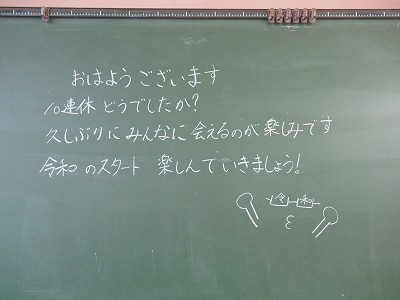 おはようございます
10連休どうでしたか?
久しぶりにみんなに会えるのが楽しみです
令和のスタート 楽しんでいきましょう!
令 和